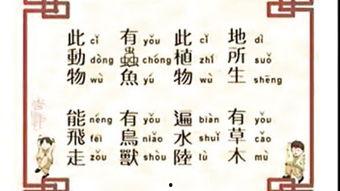 地所生 dì suǒ shēng
有草木 yǒu cǎo mù
此植物 cǐ zhí wù
遍水陸 biàn shuǐ lù
有蟲魚 yǒu chóng yú
有鳥獸 yǒu niǎo shòu
此動物 cǐ dòng wù
能飛走 néng fēi zǒu